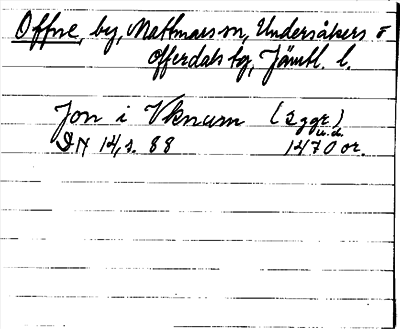 Offne, by, Mattmars sn, Undersåkers o
Offerdals tg, Jämtl. l.
Jon i Vknum (2 ggr)
u.d.
DN 14, s. 88 1470 or.